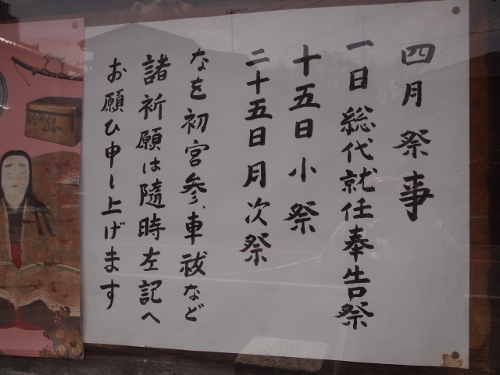 四月祭事
一日総代就任奉告祭
十五日小祭
二十五日月次祭
なを初宮参、車祓など
諸祈願は随時左記へ
お願ひ申し上げます